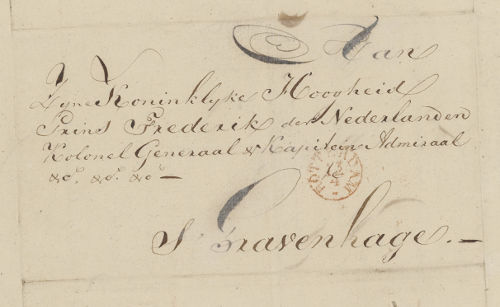 Aan
Zyne Koninklyke Hoogheid
Prins Frederik der Nederlanden
Kolonel Generaal & Kapitein Admiraal
&c. &c. &c. —
ROTTERDAM
S'Gravenhage. —